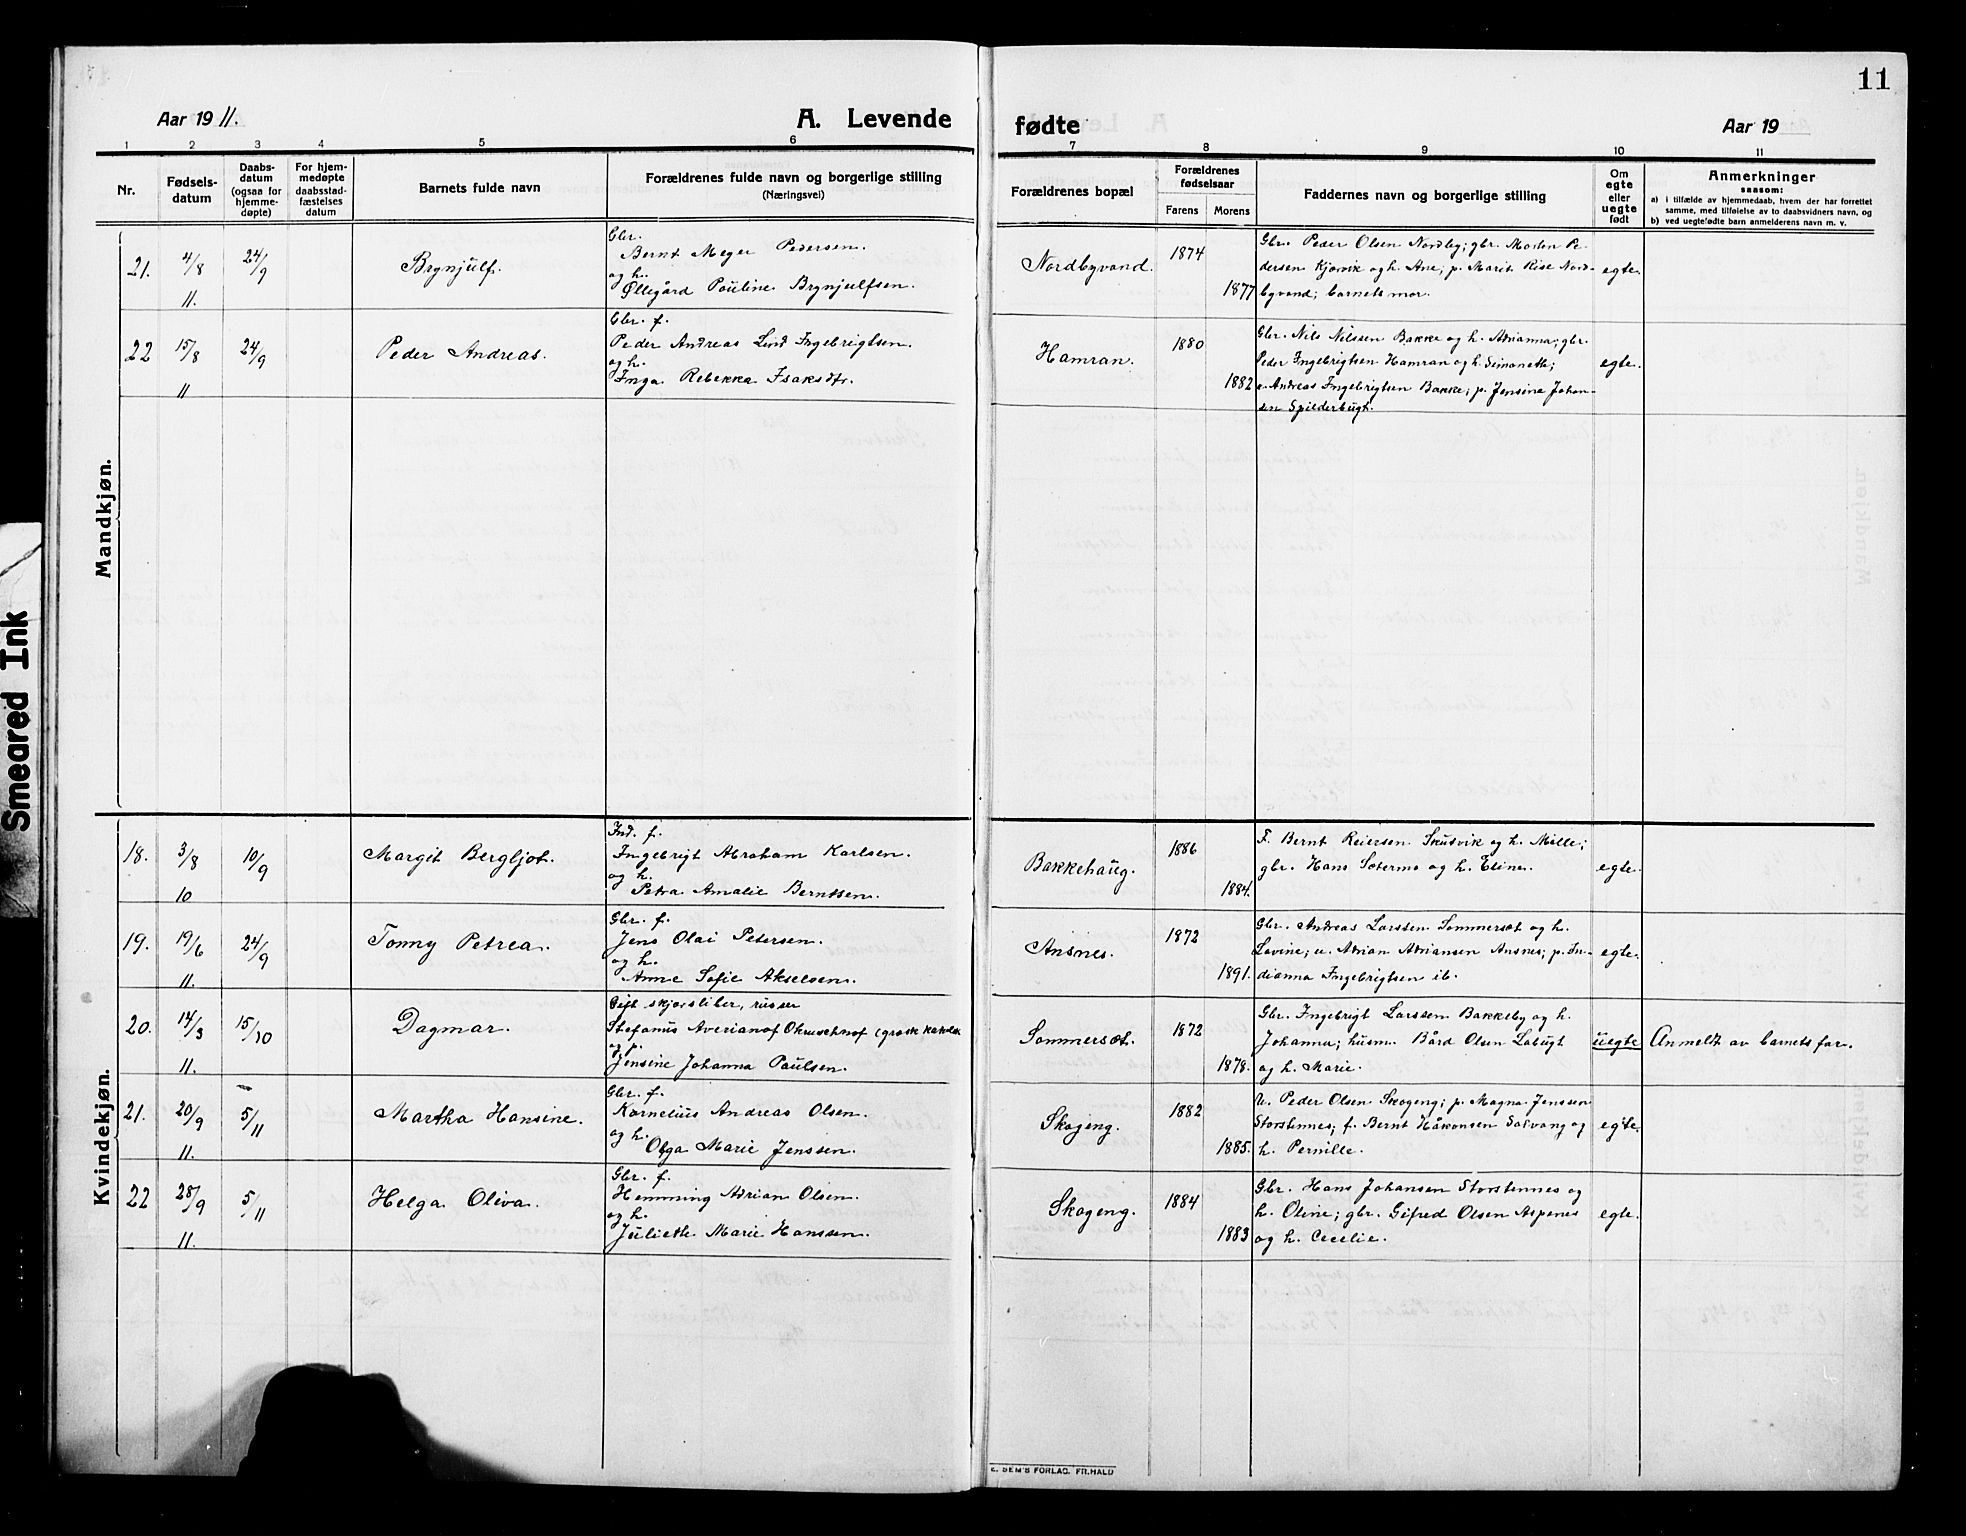 11
Aar 19 11.
A. Levende
fødte
Aar 19
1 2 3 4 5 6 7 8 9 10 11
Nr.
Fødsels-
datum
Daabs-
datum
(ogsaa for
hjemme-
døpte)
For hjem-
medøpte
daabsstad-
fæstelses
datum
Barnets fulde navn
Forældrenes fulde navn og borgerlige stilling
(Næringsvei)
Forældrenes bopæl
Forældrenes
fødselsaar
Farens Morens
Faddernes navn og borgerlige stilling
Om
egte
eller
uegte
født
Anmerkninger
saasom:
a) i tilfælde av hjemmedaab, hvem der har forrettet
samme, med tilføielse av to daabsvidners navn, og
b) ved uegtefødte barn anmelderens navn m. v.
Mandkjøn.
21. 4/8 11. 24/9 Brynjulf.
Gbr.
Bernt Meyer Pedersen.
og h.
Øllegård Pauline Brynjulfsen.
Nordbyvand. 1874 1877
Gbr. Peder Olsen Nordby; gbr. Morten Pe-
dersen Kjosvik og h. Ane; p. Marit Rise Nord-
byvand; barnets mor.
egte.
22 15/8 11 24/9 Peder Andreas.
Gbr. f.
Peder Andreas Lind Ingebrigtsen.
og h.
Inga Rebekka Isaksdtr.
Hamran. 1880 1882
Gbr. Nils Nilssen Bakke og h. Adrianna; gbr.
Peder Ingebrigtsen Hamran og h. Simonette;
u. Andreas Ingebrigtsen Bakke; p. Jensine Johan-
sen Spilderbugt.
egte.
Kvindekjøn.
18. 3/8 10 10/9 Margit Bergljot.
Ind. f.
Ingebrigt Abraham Karlsen.
og h.
Petra Amalie Berntsen.
Bakkehaug. 1886 1884.
F. Bernt Reiersen Skutvik og h. Mille;
gbr. Hans Sætermo og h. Eline.
egte.
19. 19/6 11. 24/9 Tonny Petrea.
Gbr. f.
Jens Olai Petersen.
og h.
Anne Sofie Akselsen.
Ansnes. 1872 1891.
Gbr. Andreas Larssen Sommersæt og h.
Lovine; u. Adrian Adriansen Ansnes; p. In-
dianna Ingebrigtsen ib.
egte.
20. 14/3 11. 15/10 Dagmar.
Gift skjærsliber, russer
Stefanus Averianof Okruschnof (græsk katolik
og p.
Jensine Johanna Paulsen.
Sommersæt. 1872 1878.
Gbr. Ingebrigt Larssen Bakkeby og h.
Johanna; husm. Bård Olsen Labugt
og h. Marie.
uegte Anmeldt av barnets far.
21. 20/9 11. 5/11 Martha Hansine.
Gbr. f.
Kornelius Andreas Olsen.
og h.
Olga Marie Jenssen.
Skogeng. 1882 1885.
U. Peder Olsen Skogeng; p. Magna Jenssen
Storstennes; f. Bernt Håkonsen Solvang og
h. Pernille.
egte.
22 28/9 11. 5/11 Helga Oliva.
Gbr. f.
Hemming Adrian Olsen.
og h.
Juliette Marie Hanssen.
Skogeng. 1884 1883
Gbr. Hans Johansen Storstennes og
h. Oline; gbr. Gifred Olsen Aspenes
og h. Cecelie.
egte.
E. SEM'S FORLAG, FR.HALD
Smeared Ink